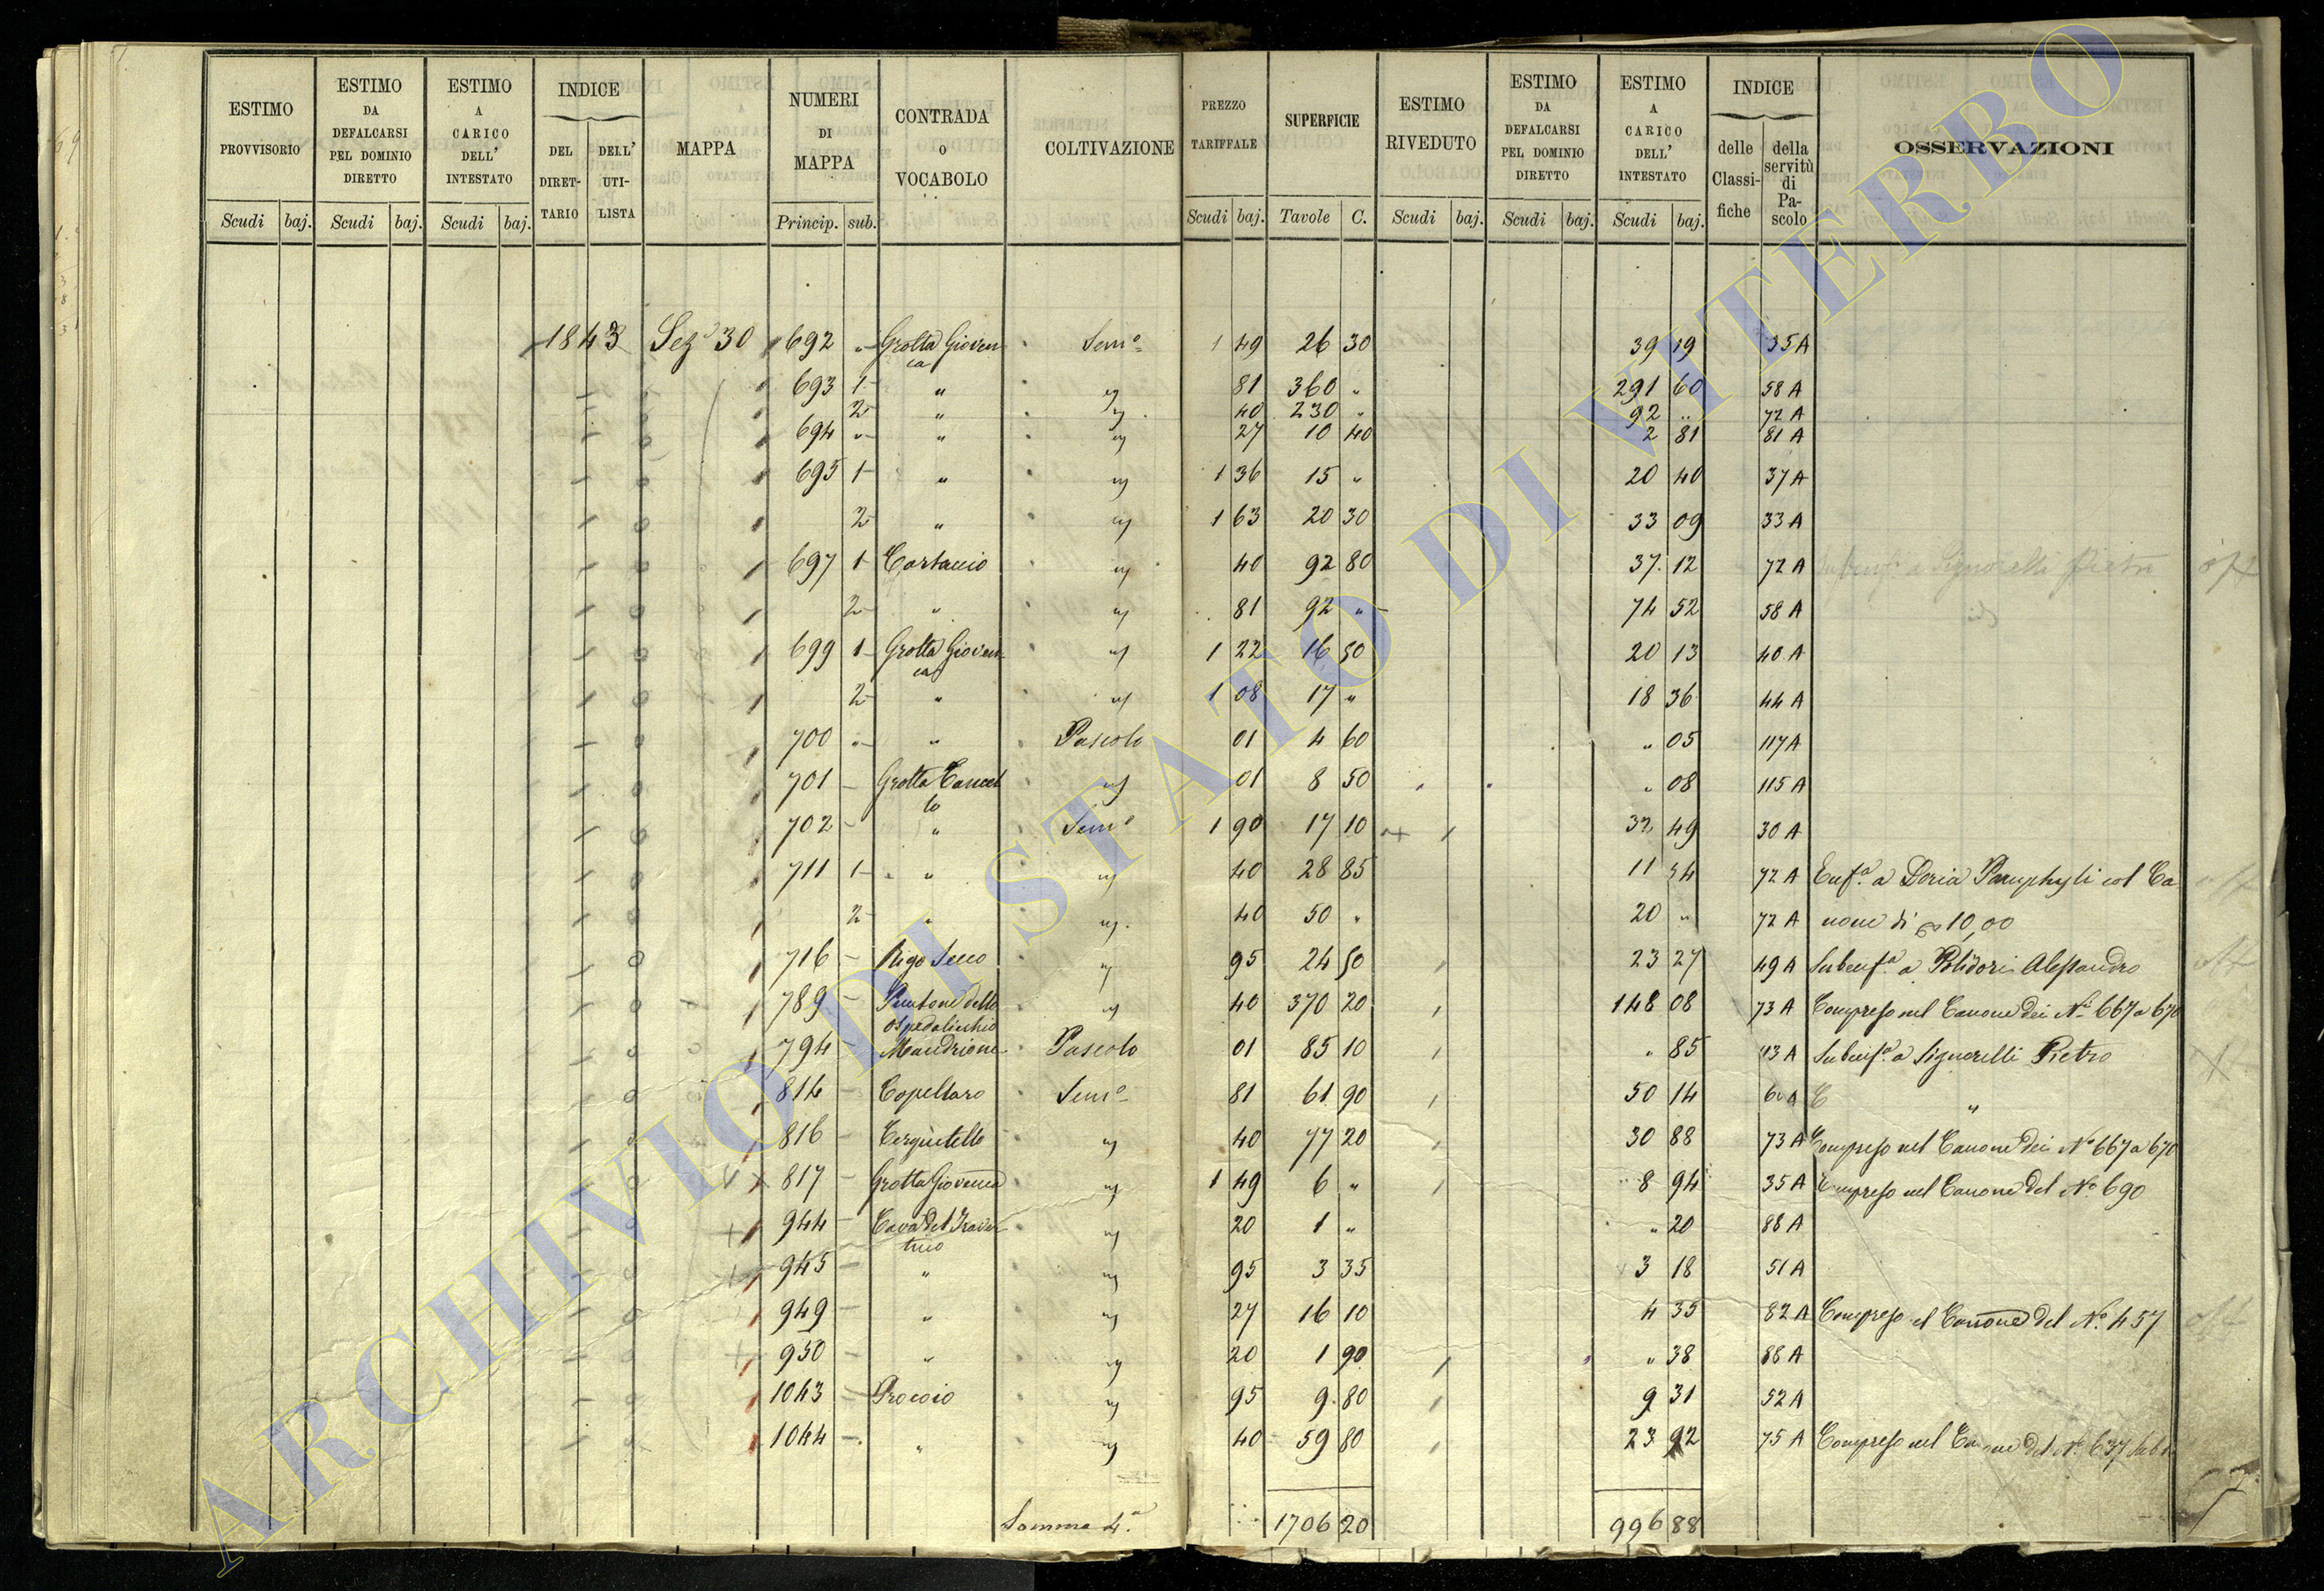 ESTIMO PROVVISORIO | ESTIMO DA DEFALCARSI PEL DOMINIO DIRETTO | ESTIMO A CARICO DELL' INTESTATO | INDICE DEL DIRETTARIO | DELL' UTILISTA | MAPPA | NUMERI DI MAPPA | CONTRADA O VOCABOLO | COLTIVAZIONE | PREZZO TARIFFALE | SUPERFICIE | ESTIMO RIVEDUTO | ESTIMO DA DEFALCARSI PEL DOMINIO DIRETTO | ESTIMO A CARICO DELL' INTESTATO | INDICE delle Classifiche | della servitù di Pascolo | OSSERVAZIONI
Scudi baj. Scudi baj. Scudi baj. Princip. sub. Scudi baj. Tavole C. Scudi baj. Scudi baj. Scudi baj.
1843 Sez 30 692 " Grotta Gioven 1 49 26 30 39 19 35A
ca
693 1 " " 81 360 " 291 60 58 A
2 " " 40 230 " 92 " 72 A
694 " " " 27 10 40 2 81 81 A
695 1 " " 1 36 15 " 20 40 37 A
2 " " 1 63 20 30 33 09 33 A
697 1 40 92 80 37 12 72 A a Signorelli Pietro
2 " " 81 92 " 74 52 58 A
699 1 Grotta Gioven 1 22 16 50 20 13 40 A
ca
2 " " 1 08 17 " 18 36 44 A
700 " " Pascolo 01 4 60 " 05 117 A
701 Grotta Cancel 01 8 50 " 08 115 A
lo
702 " Semo 1 90 17 10 32 49 30 A
711 1 " " 40 28 85 11 54 72 A Enfa a Doria Pamphyli col Ca
2 " " 40 50 " 20 " 72 A none di 10,00
716 Rigo Secco " 95 24 50 23 27 49 A Subenfa a Polidori Alessandro
789 Puntone dello " 40 370 20 148 08 73 A Compreso nel Canone dei No 667 a 670
Ospedalicchio
794 Mandrione Pascolo 01 85 10 " 85 A Subenfa a Signorelli Pietro
814 Semo 81 61 90 50 14 60 A "
816 " 40 77 20 30 88 73 A Compreso nel Canone dei No 667 a 670
817 Grotta Giovenca " 1 49 6 " 8 94 35 A Compreso nel Canone del No 690
944 Cava del Traver " 20 1 " " 20 88 A
tino
945 " " 95 3 35 3 18 51 A
949 " " 27 16 10 4 35 82 A Compreso el Canone del No 457
950 " " 20 1 90 " 38 88 A
1043 Procoio " 95 9 80 9 31 52 A
1044 " " 40 59 80 23 92 75 A Compreso nel Canone del No 637
Somma 4a 1706 20 996 88
ARCHIVIO DI STATO DI VITERBO